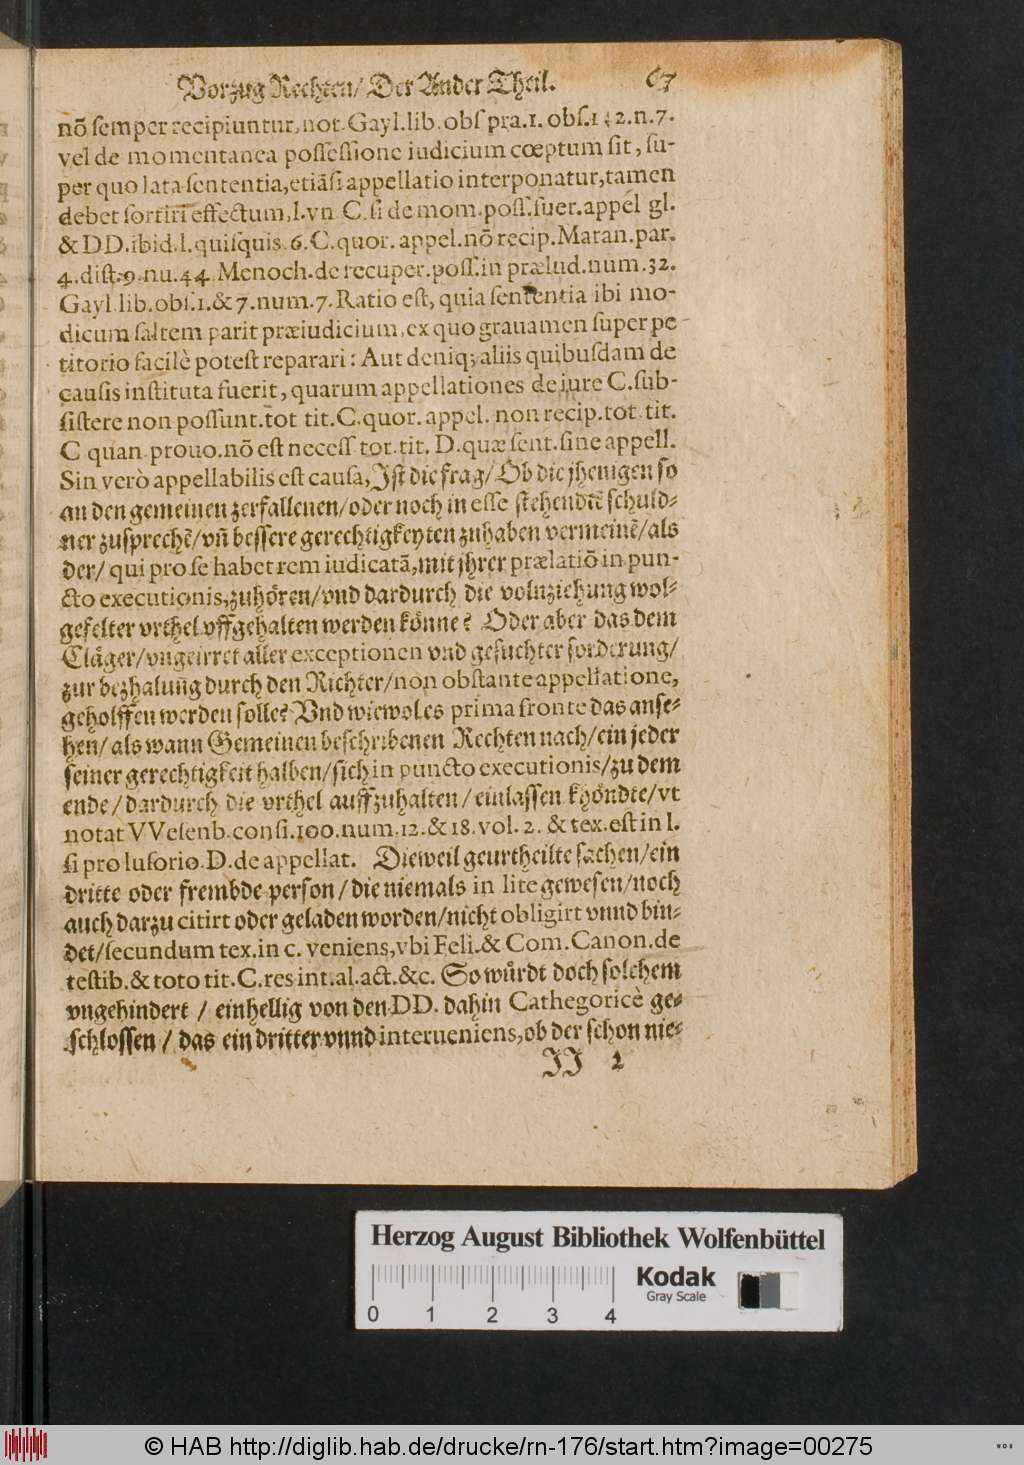 Vorzug Rechten/ Der Ander Theil. 67
nō semper recipiuntur, not. Gayl. lib. obſ pra. 1. obſ. 142. n. 7.
vel de momentanea poſſeſſione iudicium cœptum ſit, ſu-
per quo lata ſententia, etiāſi appellatio interponatur, tamen
debet ſortiri effectum, l. vn C. ſi de mom. poſſ. fuer. appel gl.
& DD. ibid. l. quiſquis. 6. C. quor. appel. nō recip. Maran. par.
4. diſt. 9. nu. 44. Menoch. de recuper. poſſ. in prælud. num. 32.
Gayl. lib. obſ. 1. & 7. num. 7. Ratio eſt, quia ſententia ibi mo-
dicum ſaltem parit præiudicium, ex quo grauamen ſuper pe-
titorio facilè poteſt reparari: Aut deniq; aliis quibuſdam de
cauſis inſtituta fuerit, quarum appellationes de iure C. ſub-
ſiſtere non poſſunt. tot tit. C. quor. appel. non recip. tot. tit.
C quan. prouo. nō eſt neceſſ tot. tit. D. quæ ſent. ſine appell.
Sin verò appellabilis eſt cauſa, Iſt die frag/ Ob die jhenigen ſo
an den gemeinen zerfallenen/ oder noch in eſſe ſtehendtē ſchuld-
ner zuſprechē/ vn̄ beſſere gerechtigkeyten zuhaben vermeinē/ als
der/ qui pro ſe habet rem iudicatā, mit jhrer prælatiō in pun-
cto executionis, zuhören/ vnd dardurch die volnziehung wol-
gefelter vrthel vffgehalten werden könne? Oder aber das dem
Cläger/ vngeirret aller exceptionen vnd geſuchter forderung/
zur bezhalung durch den Richter/ non obſtante appellatione,
geholffen werden ſolle? Vnd wiewol es prima fronte das anſe-
hen/ als wann Gemeinen beſchribenen Rechten nach/ ein jeder
ſeiner gerechtigkeit halben/ ſich in puncto executionis/ zu dem
ende/ dardurch die vrthel auffzuhalten/ einlaſſen khöndte/ vt
notat VVeſenb. conſi. 100. num. 12. & 18. vol. 2. & tex. eſt in l.
ſi pro luſorio. D. de appellat. Dieweil geurtheilte ſachen/ ein
dritte oder frembde perſon/ die niemals in lite geweſen/ noch
auch darzu citirt oder geladen worden/ nicht obligirt vnnd bin-
det/ ſecundum tex. in c. veniens, vbi Feli. & Com. Canon. de
teſtib. & toto tit. C. res int. al. act. &c. So würdt doch ſolchem
vngehindert / einhellig von den DD. dahin Cathegoricè ge-
ſchloſſen / das ein dritter vnnd interueniens, ob der ſchon nie-
JJ 2
Herzog August Bibliothek Wolfenbüttel
Kodak
Gray Scale
0 1 2 3 4
© HAB http://diglib.hab.de/drucke/rn-176/start.htm?image=00275